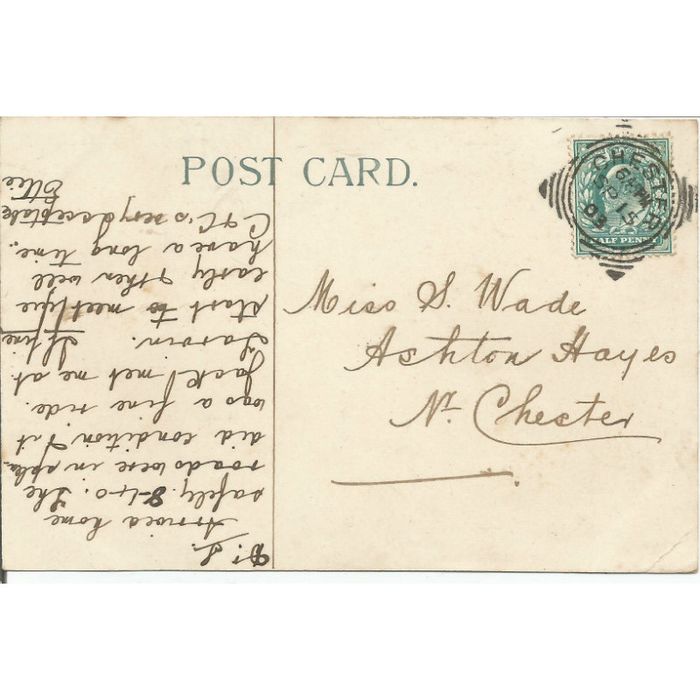 POST CARD.
CHESTER
6 45 PM
SP 15
03
HALF PENNY
Miss S. Wade
Ashton Hayes
Nr. Chester
Dr. S.
Arrived home
safely. 8-40. The
roads were in splen
did condition & it
was a fine ride.
Jack met me at
Tarvin. If fine
start to meet you
early & then will
have a long time.
C & C's very acceptable
Ellie